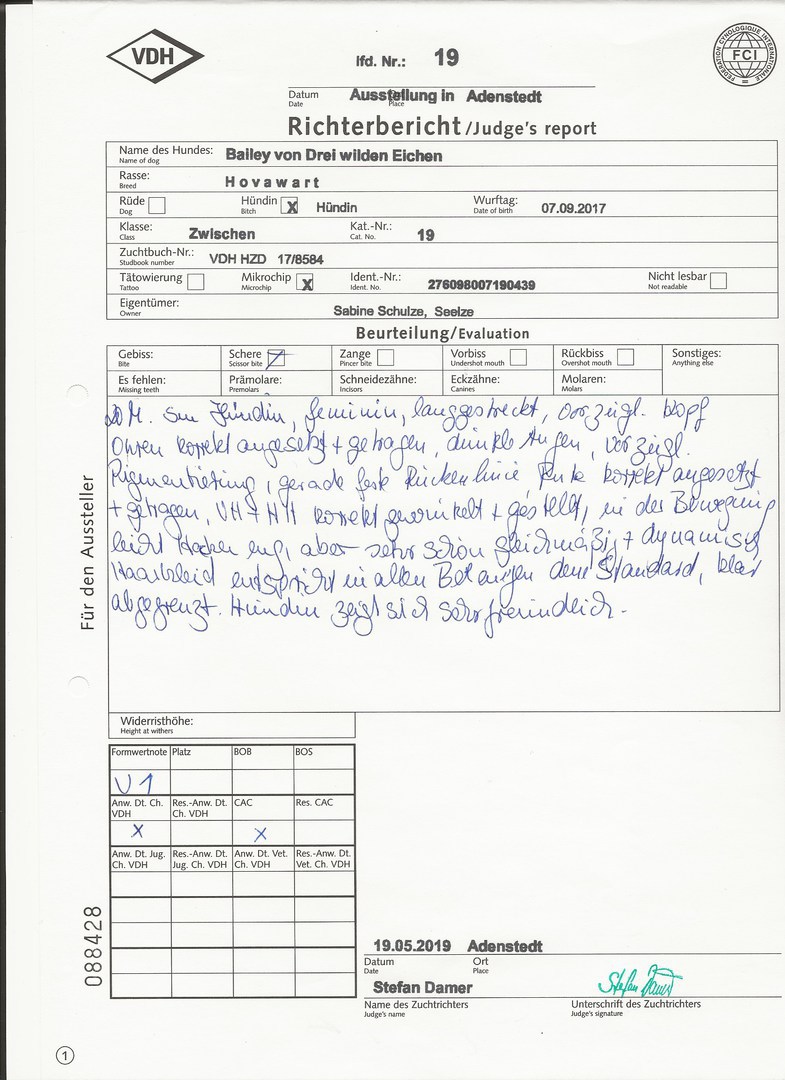 VDH
lfd. Nr.: 19
FEDERATION CYNOLOGIQUE INTERNATIONALE
FCI
Datum Ausstellung in Adenstedt
Date Place
Richterbericht/Judge's report
Name des Hundes: Bailey von Drei wilden Eichen
Name of dog
Rasse: Hovawart
Breed
Rüde Hündin X Hündin Wurftag: 07.09.2017
Dog Bitch Date of birth
Klasse: Zwischen Kat.-Nr.: 19
Class Cat. No.
Zuchtbuch-Nr.: VDH HZD 17/8584
Studbook number
Tätowierung Mikrochip X Ident.-Nr.: 276098007190439 Nicht lesbar
Tattoo Microchip Ident. No. Not readable
Eigentümer: Sabine Schulze, Seelze
Owner
Beurteilung/Evaluation
Gebiss: Schere Zange Vorbiss Rückbiss Sonstiges:
Bite Scissor bite Pincer bite Undershot mouth Overshot mouth Anything else
Es fehlen: Prämolare: Schneidezähne: Eckzähne: Molaren:
Missing teeth Premolars Incisors Canines Molars
20 M. Hündin, feminin, langgestreckt, vorzügl. Kopf
Ohren korrekt angesetzt + getragen, dunkle Augen, vorzügl.
Pigmentierung, gerade feste Rückenlinie, Rute korrekt angesetzt
+ getragen, VH + HH korrekt gewinkelt + gestellt, in der Bewegung
leicht Hacken eng, aber sehr schön gleichmäßig + dynamisch
Haarkleid entspricht in allen Belangen dem Standard, klar
abgegrenzt. Hündin zeigt sich sehr freundlich.
Für den Aussteller
Widerristhöhe:
Height at withers
Formwertnote Platz BOB BOS
V 1
Anw. Dt. Ch. VDH Res.-Anw. Dt. Ch. VDH CAC Res. CAC
X X
Anw. Dt. Jug. Ch. VDH Res.-Anw. Dt. Jug. Ch. VDH Anw. Dt. Vet. Ch. VDH Res.-Anw. Dt. Vet. Ch. VDH
088428
19.05.2019 Adenstedt
Datum Ort
Date Place
Stefan Damer Stefan Damer
Name des Zuchtrichters Unterschrift des Zuchtrichters
Judge's name Judge's signature
1